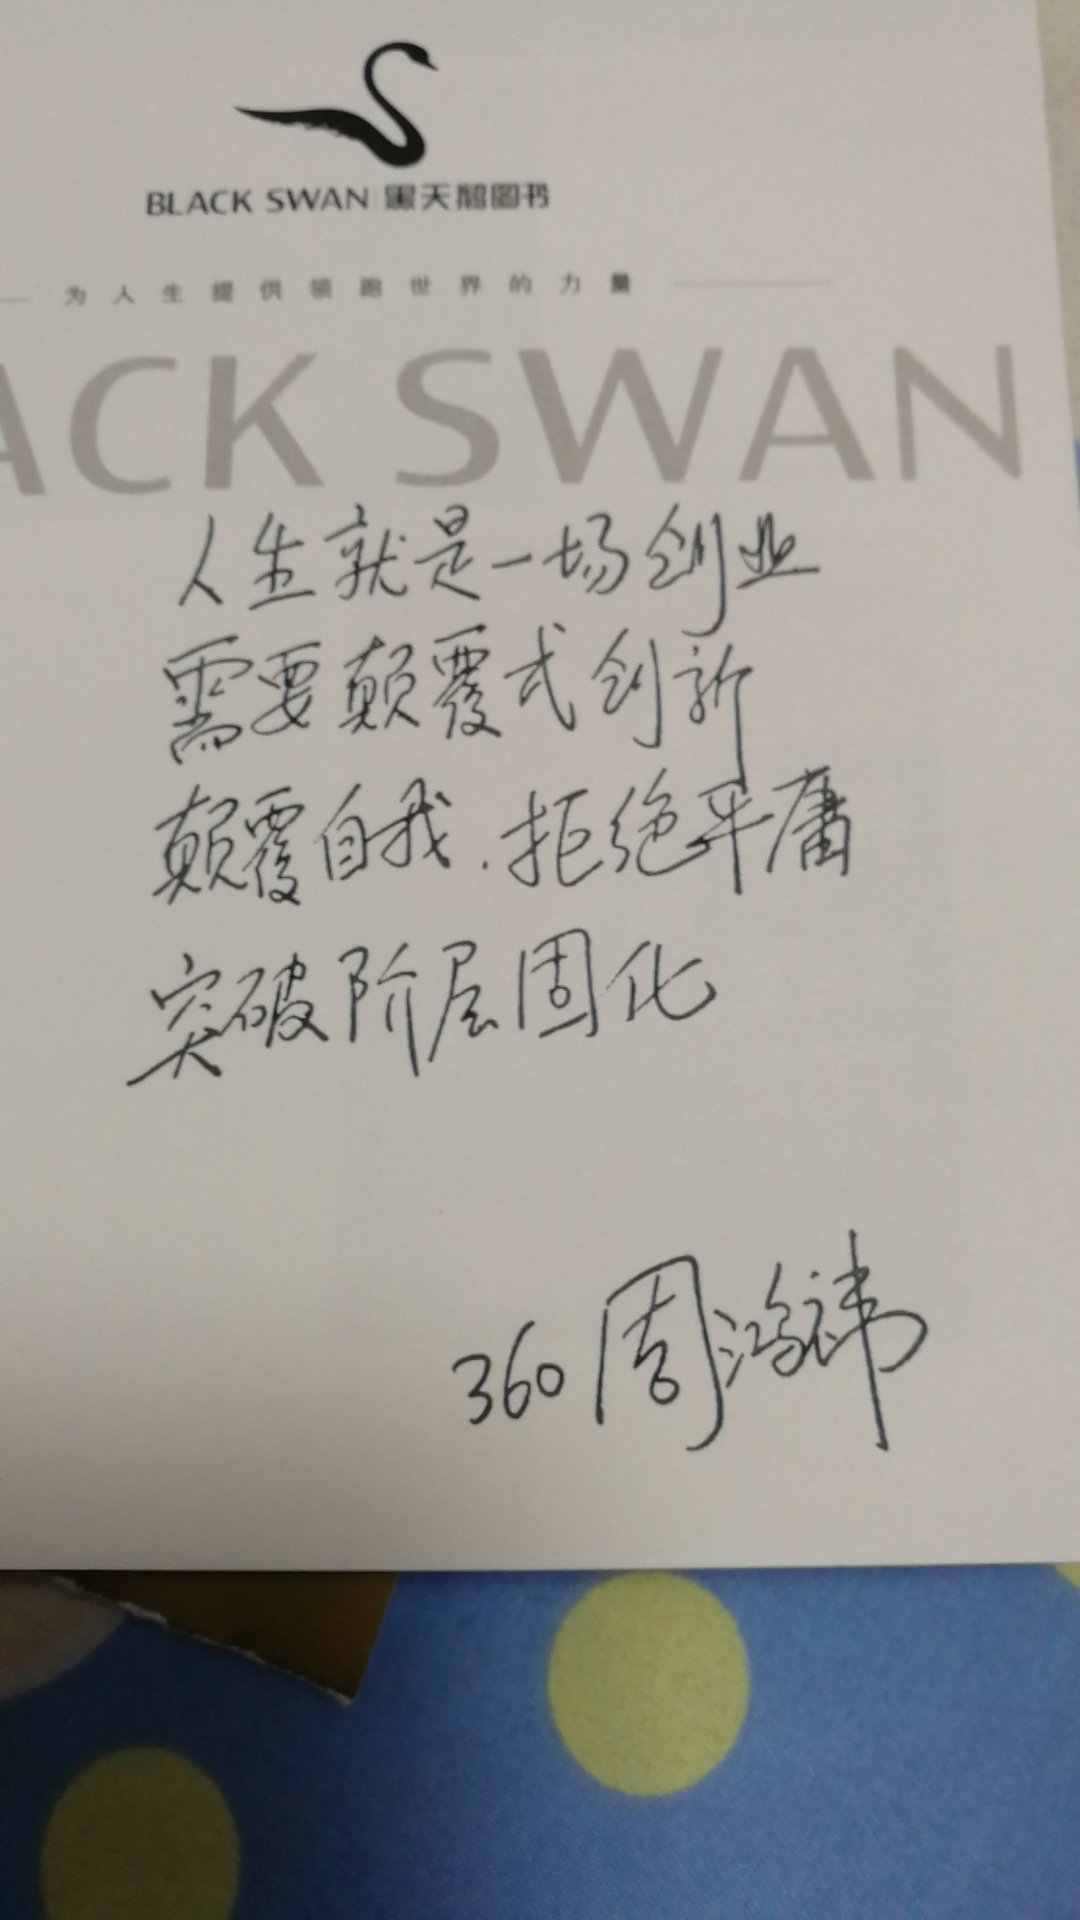 BLACK SWAN 黑天鹅图书
为人生提供领跑世界的力量
ACK SWAN
人生就是一场创业
需要颠覆式创新
颠覆自我.拒绝平庸
突破阶层固化
360周鸿祎